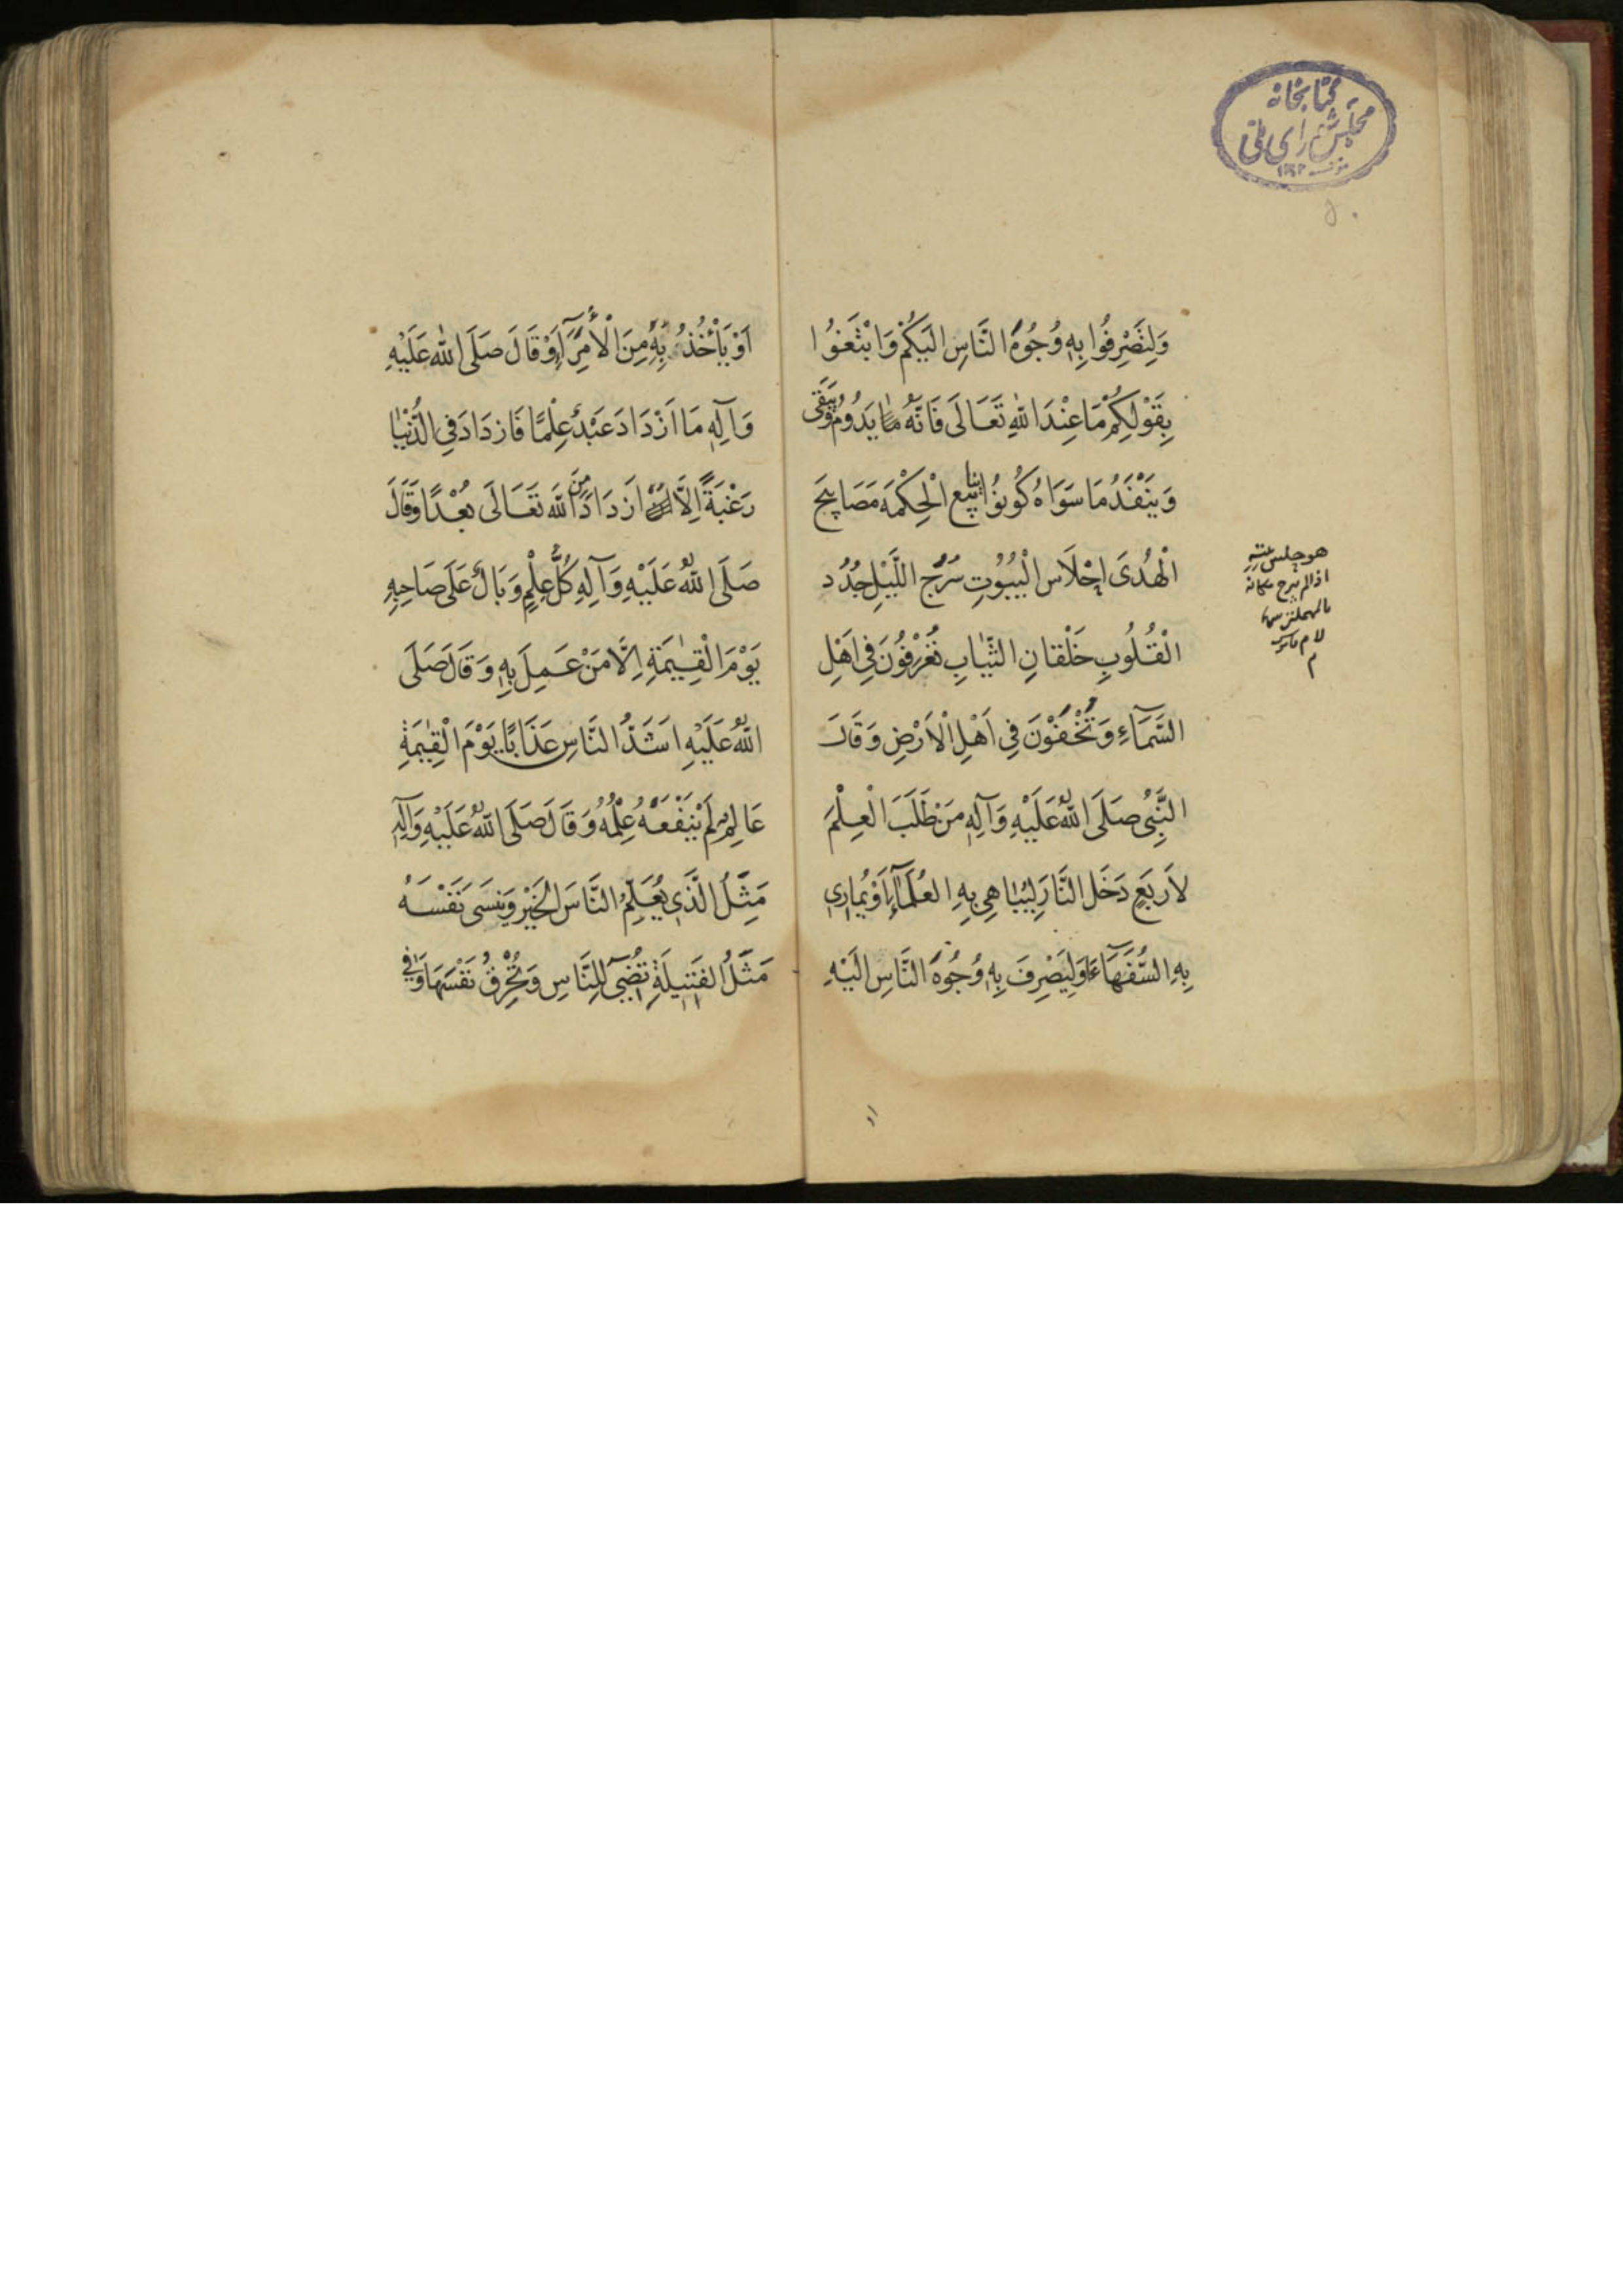 كتابخانه
مجلس شورای ملی
وَلِتَصْرِفُوا بِهِ وُجُوهَ النَّاسِ اِلَيْكُمْ وَابْتَغُوا
بِقَوْلِكُمْ مَا عِنْدَ اللهِ تَعَالَى فَاِنَّهُ مَا يَدُومُ وَيَبْقَى
وَيَنْفَدُ مَا سَوَاهُ كُونُوا يَنَابِيعَ الْحِكْمَةِ مَصَابِيحَ
الْهُدَى اَحْلَاسَ الْبُيُوتِ سُرُجَ اللَّيْلِ جُدُدَ
الْقُلُوبِ خَلْقَانِ الثِّيَابِ تُعْرَفُونَ فِي اَهْلِ
السَّمَآءِ وَتُخْفَوْنَ فِي اَهْلِ الْاَرْضِ وَقَالَ
النَّبِيُّ صَلَّى اللهُ عَلَيْهِ وَآلِهِ مَنْ طَلَبَ الْعِلْمَ
لِاَرْبَعٍ دَخَلَ النَّارَ لِيُبَاهِيَ بِهِ الْعُلَمَآءَ اَوْ يُمَارِيَ
بِهِ السُّفَهَآءَ اَوْ لِيَصْرِفَ بِهِ وُجُوهَ النَّاسِ اِلَيْهِ
هو جلس بيته
اذا لم يبرح مكانه
اَوْ يَأْخُذَ بِهِ مِنَ الْاُمَرَآءِ وَقَالَ صَلَّى اللهُ عَلَيْهِ
وَآلِهِ مَا ازْدَادَ عَبْدٌ عِلْمًا فَازْدَادَ فِي الدُّنْيَا
رَغْبَةً اِلَّا ازْدَادَ مِنَ اللهِ تَعَالَى بُعْدًا وَقَالَ
صَلَّى اللهُ عَلَيْهِ وَآلِهِ كُلُّ عِلْمٍ وَبَالٌ عَلَى صَاحِبِهِ
يَوْمَ الْقِيٰمَةِ اِلَّا مَنْ عَمِلَ بِهِ وَقَالَ صَلَّى
اللهُ عَلَيْهِ اَشَدُّ النَّاسِ عَذَابًا يَوْمَ الْقِيٰمَةِ
عَالِمٌ لَمْ يَنْفَعْهُ عِلْمُهُ وَقَالَ صَلَّى اللهُ عَلَيْهِ وَآلِهِ
مَثَلُ الَّذِي يُعَلِّمُ النَّاسَ الْخَيْرَ وَيَنْسَى نَفْسَهُ
مَثَلُ الْفَتِيلَةِ تُضِيءُ لِلنَّاسِ وَتُحْرِقُ نَفْسَهَا وَفِي